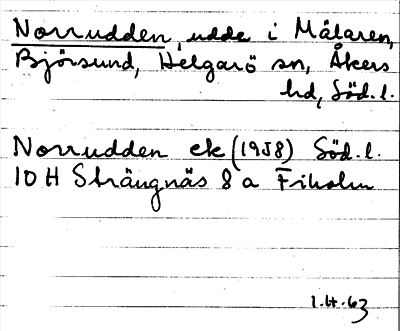 Norrudden, udde i Mälaren,
Björsund, Helgarö sn, Åkers
hd, Söd.l.
Norrudden ek (1958) Söd.l.
10 H Strängnäs 8 a Fiholm
1.4.63